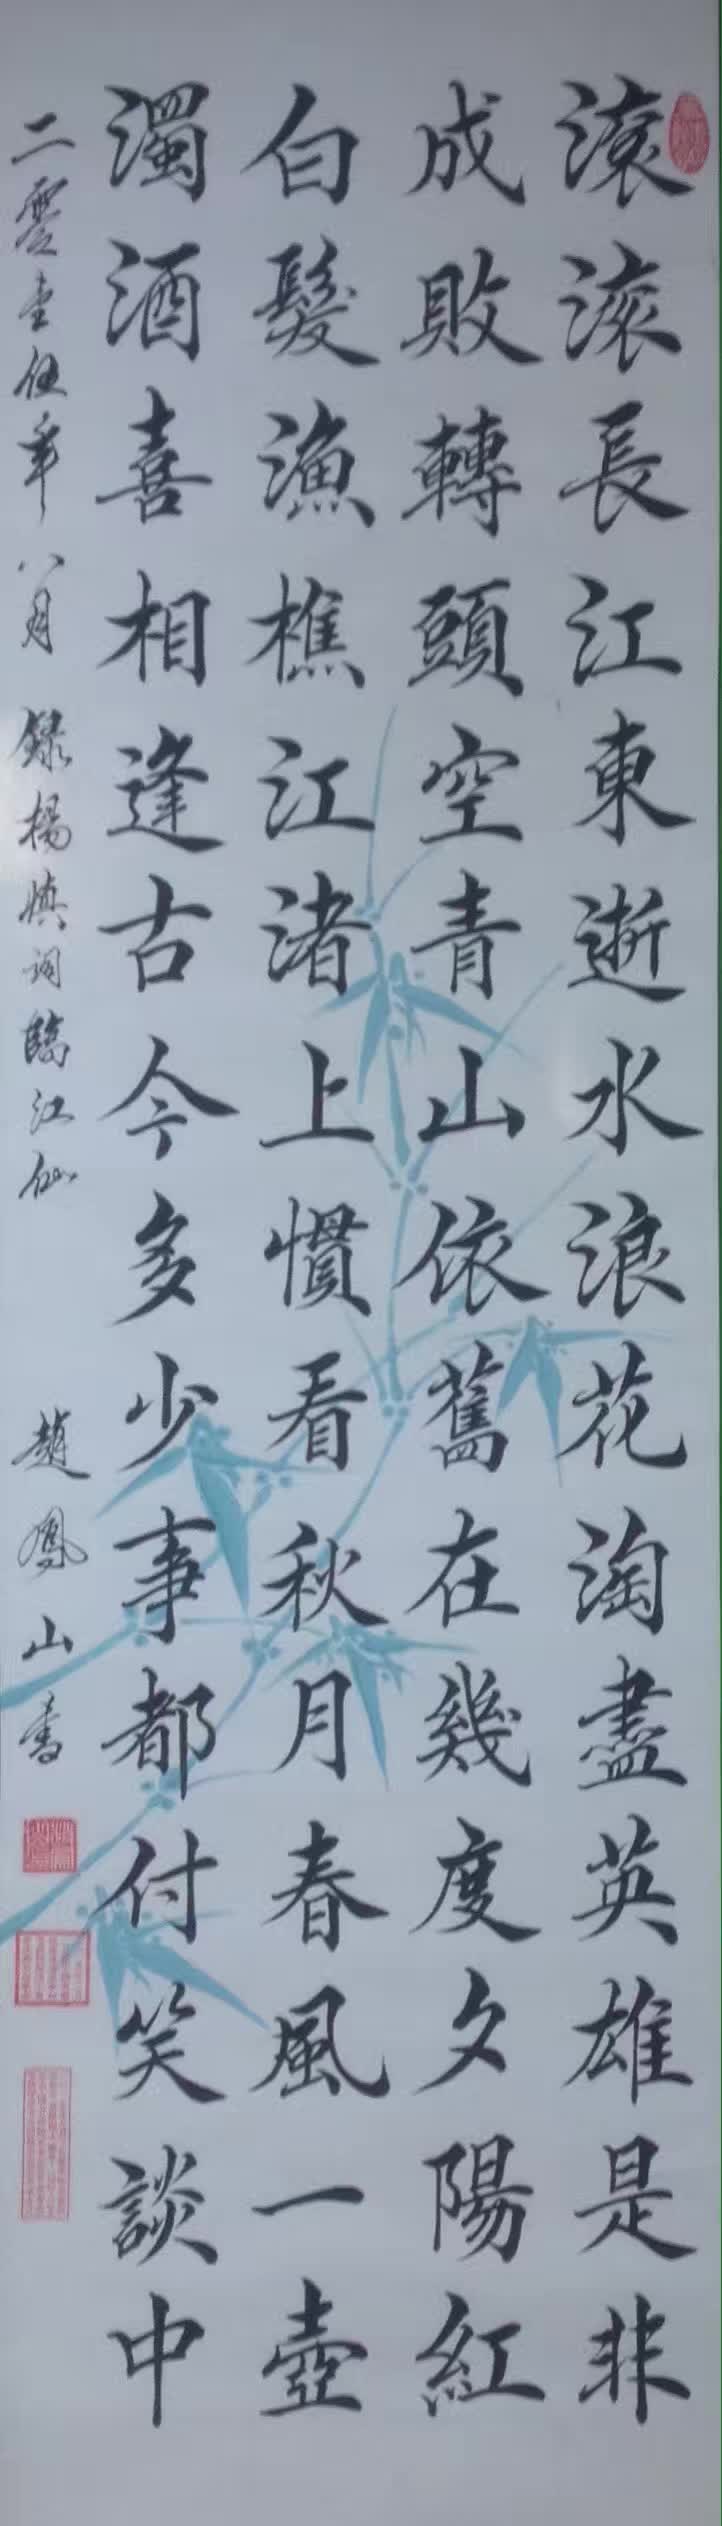 滚滚長江東逝水浪花淘盡英雄是非
成敗轉頭空青山依舊在幾度夕陽紅
白髮漁樵江渚上慣看秋月春風一壺
濁酒喜相逢古今多少事都付笑談中
二零壹伍年八月 錄楊慎词臨江仙 趙鳳山書